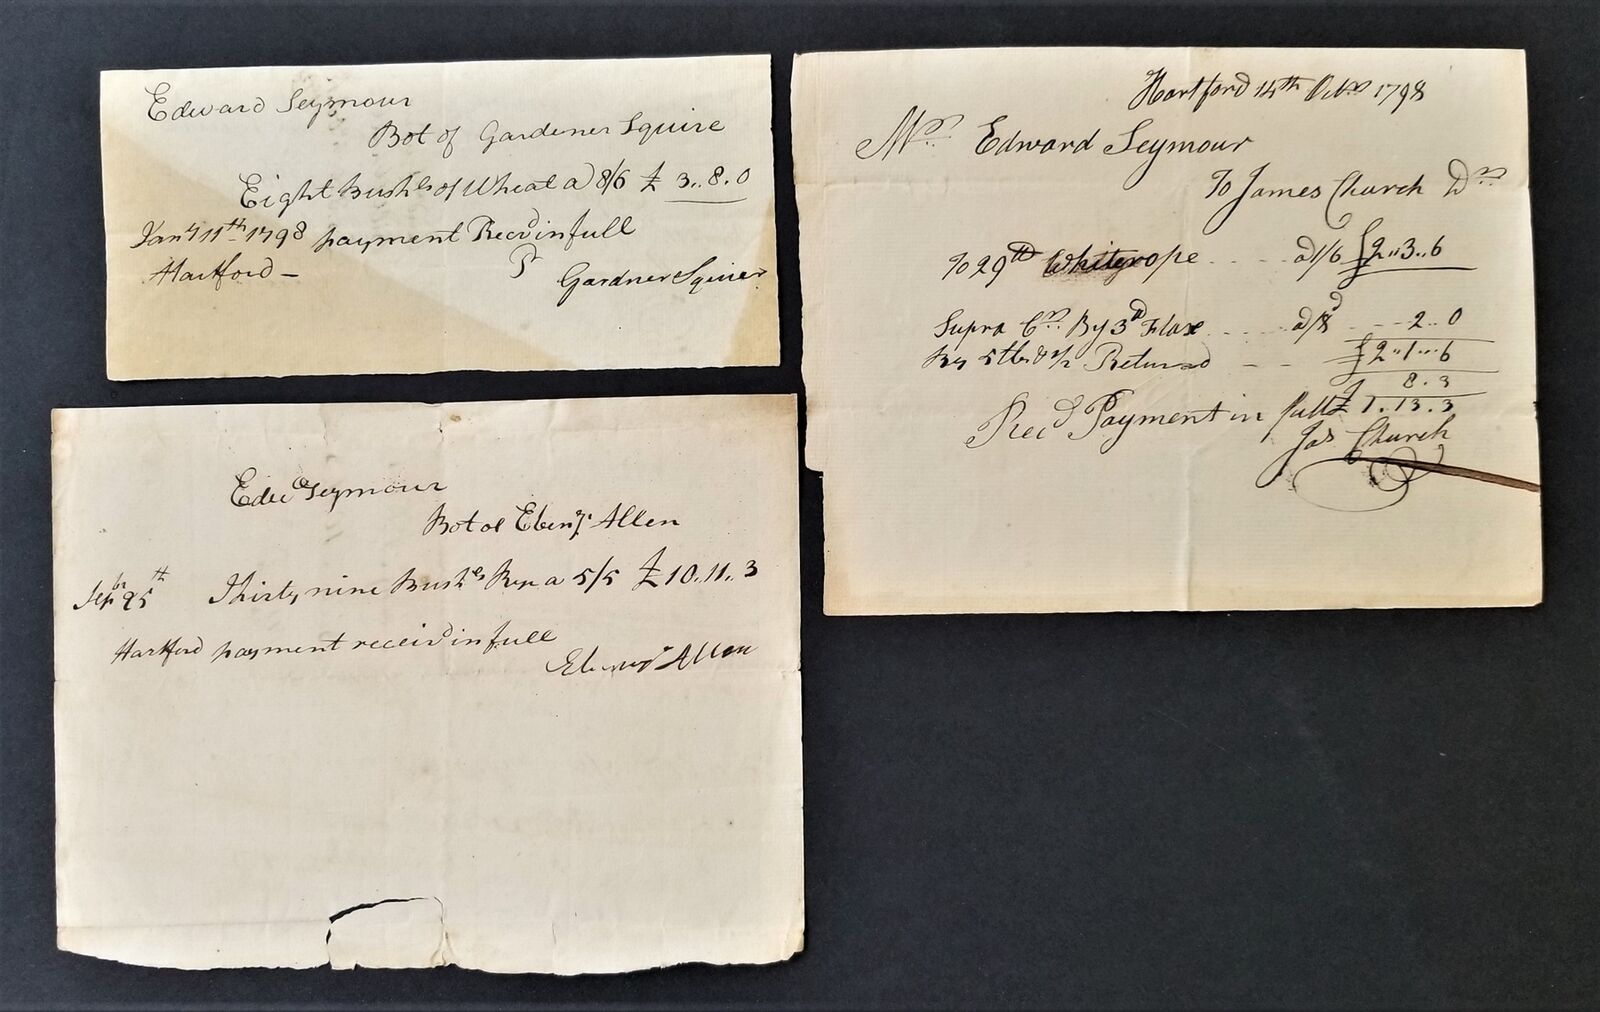 Edward Seymour
Bot of Gardener Squire
Eight Bushls of Wheat a 8/6 £ 3..8.0
Jany 11th 1798 payment Recd in full
Hartford – Pr
Gardner Squier
Edwd Seymour
Bot of Ebenzr Allen
Sepbr 25th Thirty nine Bushls Rye a 5/5 £ 10..11..3
Hartford payment receivd in full
Ebenzr Allen
Hartford 14th Octbr 1798
Mr Edward Seymour
To James Church Dr
To 29 lb White rope . . . . a 1/6 £2..3..6
Supra Cr By 3 lb Flax . . . . a /8d - - 2..0
£2..1..6
By 5 lb & 1/2 Returnd - - 8.3
Recd Payment in full £ 1.13.3
Jas Church